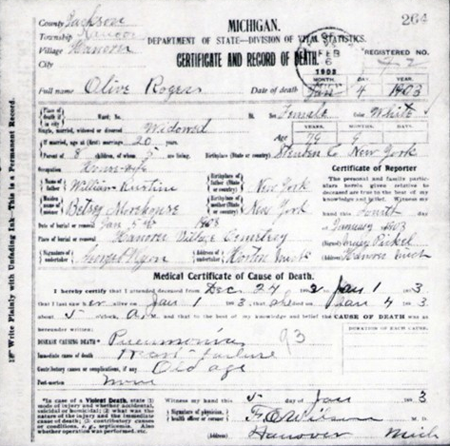 264
County Jackson
MICHIGAN.
Township Hanover
DEPARTMENT OF STATE—DIVISION OF VITAL STATISTICS.
Village Hanover
CERTIFICATE AND RECORD OF DEATH.
FEB
6
1903
REGISTERED NO.
City
MONTH. DAY. YEAR.
Full name Olive Rogers Date of death Jan 4 1903
Place of death if in city
Ward; No. St. Sex Female Color White
Single, married, widowed or divorced Widowed
YEARS. MONTHS. DAYS.
If married, age at (first) marriage 20 years. Age 79 9
Parent of 8 children, of whom 5 are living. Birthplace (State or country) Steuben Co New York
Occupation House-wife
Certificate of Reporter
Name of father William
Birthplace of father (State or country) New York
The personal and family particulars herein given relative to deceased are true to the best of my knowledge and belief. Witness my hand this fourth day of January 1903
Maiden name of mother Betsey Morehouse
Birthplace of mother (State or country) New York
Date of burial or removal Jan 5th 1903
Place of burial or removal Hanover Village Cemetery
(Signed)
(Address) Hanover Mich
Signature of undertaker George (Address) Horton Mich
Medical Certificate of Cause of Death.
I hereby certify that I attended deceased from Dec. 24 1902 Jan 1 1903,
that I last saw her alive on Jan 1 1903, that she died on Jan 4 1903,
about 5 o'clock, A.M. and that to the best of my knowledge and belief the CAUSE OF DEATH was
hereunder written:
DURATION OF EACH CAUSE.
DISEASE CAUSING DEATH Pneumonia 93
Immediate cause of death Heart failure
Contributory causes or complications, if any Old age
Post-mortem none
"In case of a Violent Death, state (1) mode of injury and whether accidental, suicidal or homicidal; (2) what was the nature of the injury and the immediate cause of death; (3) contributory causes or conditions, e. g., septicemia. Also whether operation was performed, etc.
Witness my hand this 5 day of Jan 1903
Signature of physician, health officer or coroner F. E. Wilson M. D.
(Address) Hanover Mich
Write Plainly with Unfading Ink—This is a Permanent Record.